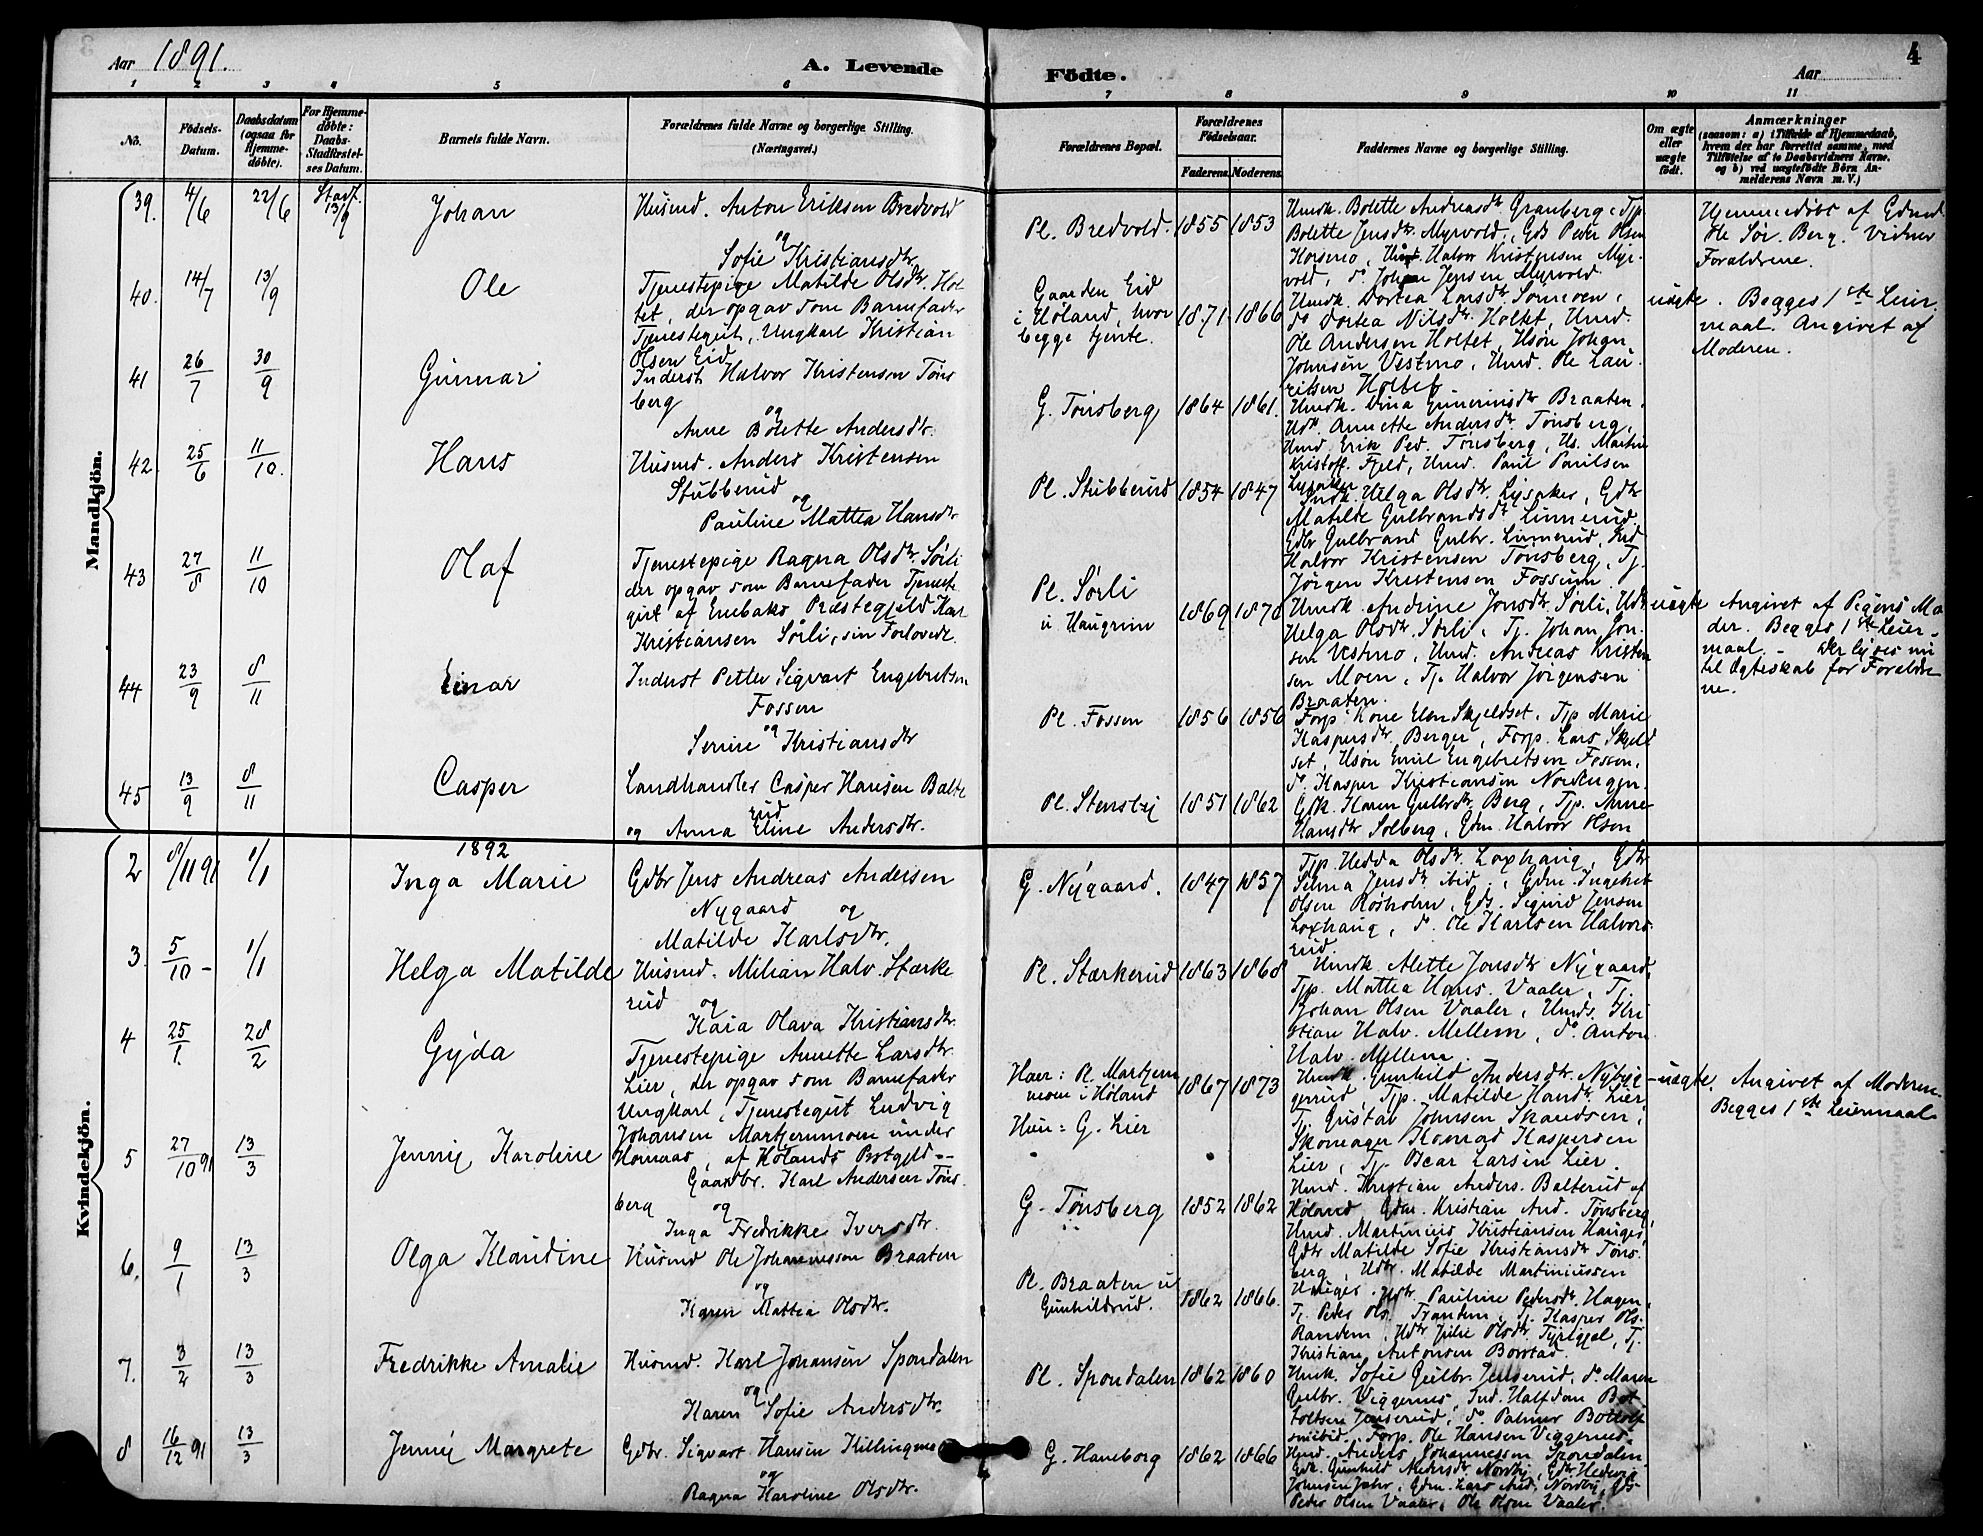 Aar 1891.
A. Levende
Födte.
Aar
4
1 2 3 4 5 6 7 8 9 10 11
No.
Födsels-Datum.
Daabsdatum (ogsaa for Hjemme-døbte).
For Hjemme-døbte: Daabs-Stadfæstel-ses Datum.
Barnets fulde Navn.
Forældrenes fulde Navne og borgerlige Stilling.
(Næringsvei.)
Forældrenes Bopæl.
Forældrenes Födselsaar.
Faderens. Moderens.
Faddernes Navne og borgerlige Stilling.
Om ægte eller uægte födt.
Anmærkninger
(saasom: a) i Tilfælde af Hjemmedaab, hvem der har forrettet samme, med Tilföielse af to Daabsvidners Navne, og b) ved uægtefödte Börn Anmelderens Navn m. V.)
Mandkjön.
39. 4/6 22/6 Stadf. 13/9 Johan
Husmd. Anton Eriksen Bredvold
og
Sofie Kristiansdtr.
Pl. Bredvold. 1855 1853
Hmdk. Bolette Andreasdtr. Granberg, Tjp.
Bolette Jensdtr. Myrvold, Gds Peder Olsen
Horsmo, Hmd. Halvor Kristensen Myr-
vold, do Johan Jensen Myrvold.
Hjemmedøbt af Gdmd.
Ole Sør. Berg. Vidner
Forældrene.
40. 14/7 13/9 Ole
Tjenestepige Matilde Olsdtr. Hol-
tet, der opgav som Barnefader
Tjenestegut, Ungkarl Kristian
Olsen Eid
Gaarden Eid
i Høland, hvor
begge tjente.
1871 1866
Hmdk. Dortea Larsdtr. Sørmoen,
do Dortea Nilsdtr. Holtet, Hmd.
Ole Andersen Holtet, Hsøn Johan
Johnsen Vestmo, Hmd. Ole Lau-
ritsen Holtet
uægte. Begges 1ste Leier-
maal. Angivet af
Moderen.
41 26/7 30/9 Gunnar
Inderst Halvor Kristensen Tøns
berg
og
Anne Bolette Andersdtr.
G. Tønsberg 1864 1861.
Hmdk. Dina Guneriusdtr Braaten,
Hdtr. Annette Andersdtr. Tønsberg,
Hmd. Erik Ped. Tønsberg, Hs. Martin
Kristoff. Fjeld, Hmd. Paul Paulsen
Lysaker
42. 25/6 11/10. Hans
Husmd. Anders Kristensen
Stubberud
og
Pauline Mattea Hansdtr
Pl. Stubberud 1854 1847
Indk. Helga Olsdtr. Lysaker, Gdtr
Matilde Gulbrandsdtr. Linnerud.
Gdbr Gulbrand Gulbr. Linnerud, Ind
Halvor Kristensen Tønsberg, Tj.
Jørgen Kristensen Fossum.
43 27/8 11/10 Olaf
Tjenestepige Ragna Olsdtr. Sørli
der opgav som Barnefader Tjeneste
gut af Enebaks Præstegjeld Karl
Kristiansen Sørli, sin Forlovede.
Pl. Sørli
u. Haugrim
1869 1870
Hmdk. Andrine Jonsdtr. Sørli, Hdtr
Helga Olsdtr. Sørli, Tj. Johan Jon-
sen Vestmo, Hmd. Andreas Kristen
sen Moen, Tj. Halvor Jørgensen
Braaten.
uægte Angivet af Pigens Mo-
der. Begges 1ste Leier-
maal. - Der lyses nu
til Ægteskab for Forældre
ne.
44 23/9 8/11 Einar
Inderst Petter Sigvart Engebretsen
Fossen
og
Serine Kristiansdtr
Pl. Fossen 1856 1856
Forp. Kone Elen Skjeldset, Tjp. Marie
Kaspersdtr. Berger, Forp. Lars Skjeld
set, Hsøn Emil Engebretsen Fossen,
do. Kasper Kristiansen Nordengen.
45 13/9 8/11 Casper
Landhandler Casper Hansen Balte
rud
og Anna Eline Andersdtr.
Pl. Stensby 1851 1862
Gdk. Karen Gulbrdtr. Berg, Tjp. Anne
Hansdtr Solberg, Gdm. Halvor Olsen
Kvindekjön.
1892
2 8/11 91 1/1 Inga Marie
Gdbr Jens Andreas Andersen
Nygaard og
Matilde Karlsdtr.
G. Nygaard. 1847 1857
Tjp. Hedda Olsdtr. Loxhaug, Gdtr
Selma Jensdtr. ibid., Gdm. Ingebret
Olsen Røsholm, Gds. Sigurd Jensen
Loxhaug, do. Ole Karlsen Halvors-
rud.
3. 5/10 - 1/1 Helga Matilde
Husmd. Milian Halv. Stærke
rud og
Kaia Olava Kristiansdtr.
Pl. Stærkerud 1863 1868
Hmdk. Alette Jonsdtr Nygaard,
Tjp. Mattea Hans. Vaaler, Tj.
Johan Olsen Vaaler, Hmds. Kri
stian Halv. Mellem, do. Anton
Halv. Mellem.
4 25/1 28/2 Gyda
Tjenestepige Annette Larsdtr.
Lier, der opgav som Barnefader
Ungkarl, Tjenestegut Ludvig
Johansen Martjernmoen under
Homaas, af Hølands Pstgjld.
Haer: Pl. Martjern
moen i Høland
Hun: G. Lier
1867 1873
Hmdk. Gunhild Andersdtr. Nybyg-
gerud, Tjp. Matilde Handtr. Lier
Tj. Gustav Johnsen Skansen,
Skomager Konrad Kaspersen
Lier, Tj. Oscar Larsen Lier.
uægte. Angivet af Moderen.
Begges 1ste Leiermaal
5 27/10 91 13/3 Jenny Karoline
Gaardbr. Karl Andersen Tøns-
berg og
Inga Fredrikke Iversdtr.
G. Tønsberg 1852 1862
Hmd. Kristian Anders. Balterud af
Høland, Gdm. Kristian And. Tønsberg,
Hmd. Martinius Kristiansen Hauger,
Gdtr Matilde Sofie Kristiansdtr Tøns-
berg, Hdtr. Matilde Martiniussen
Hauger.
6. 9/1 13/3 Olga Klaudine
Husmd Ole Johannessen Braaten
og
Karen Mattea Olsdtr.
Pl. Braaten u
Gunhildrud.
1862 1866.
Hdtr Pauline Pedersdtr. Hagen,
Tj. Peder Ols. Trandem, Tj. Kasper Ols.
Randem, Hdtr Julie Olsdtr. Tyrigjel, Tj.
Kristian Antonsen Borstad.
7. 3/2 13/3 Fredrikke Amalie
Husmd. Karl Johansen Spondalen
og
Karen Sofie Andersdtr.
Pl. Spondalen 1862 1860
Hmk. Sofie Gulbr. Jenserud, do. Maren
Gulbr. Viggernes, Ind. Halfdan Bot
tolfsen Jenserud, do. Palmer Bottolf
sen ibid., Forp. Ole Hansen Viggernes.
Hmd. Anders Johannessen Spondalen
8 16/12 91 13/3 Jenny Margrete
Gdbr. Sigvart Hansen Killingmo
og
Ragna Karoline Olsdtr.
G. Haneborg 1862 1866
Gdk. Gunhild Andersdtr. Nordby, Gdtr Hedevig
Johnsen Jahr, Gdm. Lars And. Nordby, Gds.
Peder Olsen Vaaler, Ole Olsen Vaaler.